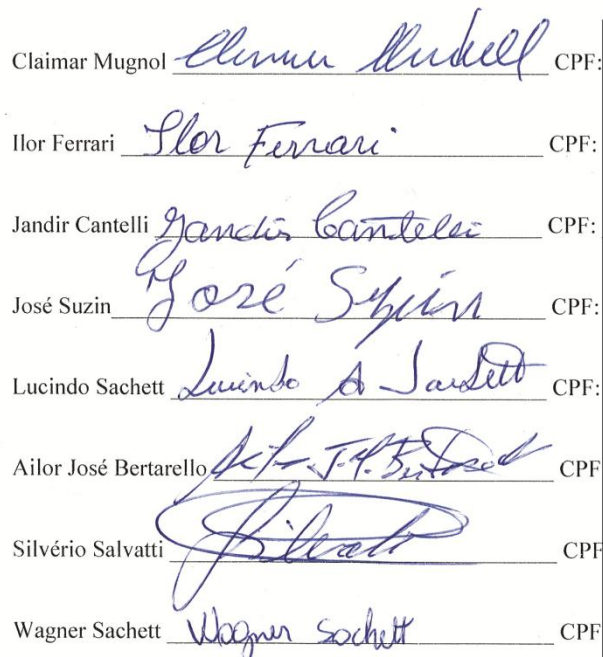 Claimar Mugnol CPF:
Ilor Ferrari Ilor Ferrari CPF:
Jandir Cantelli Jandir Cantelli CPF:
José Suzin José Suzin CPF:
Lucindo Sachett Lucindo A Sachett CPF:
Ailor José Bertarello CPF
Silvério Salvatti CPF
Wagner Sachett Wagner Sachett CPF